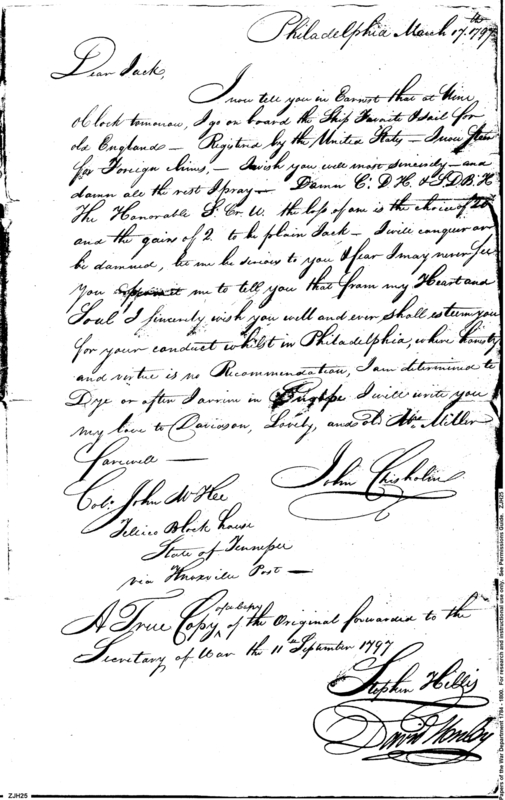 Philadelphia March 17.th 1797
Dear Jack,
I now tell you in Earnest that at Nine
O Clock tomorrow, I go on board the Ship Favorite I sail for
old England — Registred by the United States — I now
for Foreign climes, — I wish you well most sincerely — and
damn all the rest I pray — Damn C. D H. & S. D. B. H
The Honorable S. Cr. W. the loss of one is the choice of
and the gains of 2. to be plain Jack — I will conquer or
be damned, let me be serious to you I fear I may never see
you me to tell you that from my Heart and
Soul I sincerely wish you well and ever shall esteem you
for your conduct whilst in Philadelphia, where honesty
and virtue is no Recommendation, I am determined to
Dye or after I arrive in Europe I will write you
my love to Davidson, Lovely, and old Miller
farewell —
John Chisholm
Colo. John McKee
Tellico Block house
State of Tennessee
via Knoxville Post —
A True Copy of a Copy of the Original forwarded to the
Secretary of War the 11th September 1797
Stephen Hillis
David Henley
ZJH25
Papers of the War Department 1784 - 1800. For research and instructional use only. See Permissions Guide. ZJH25